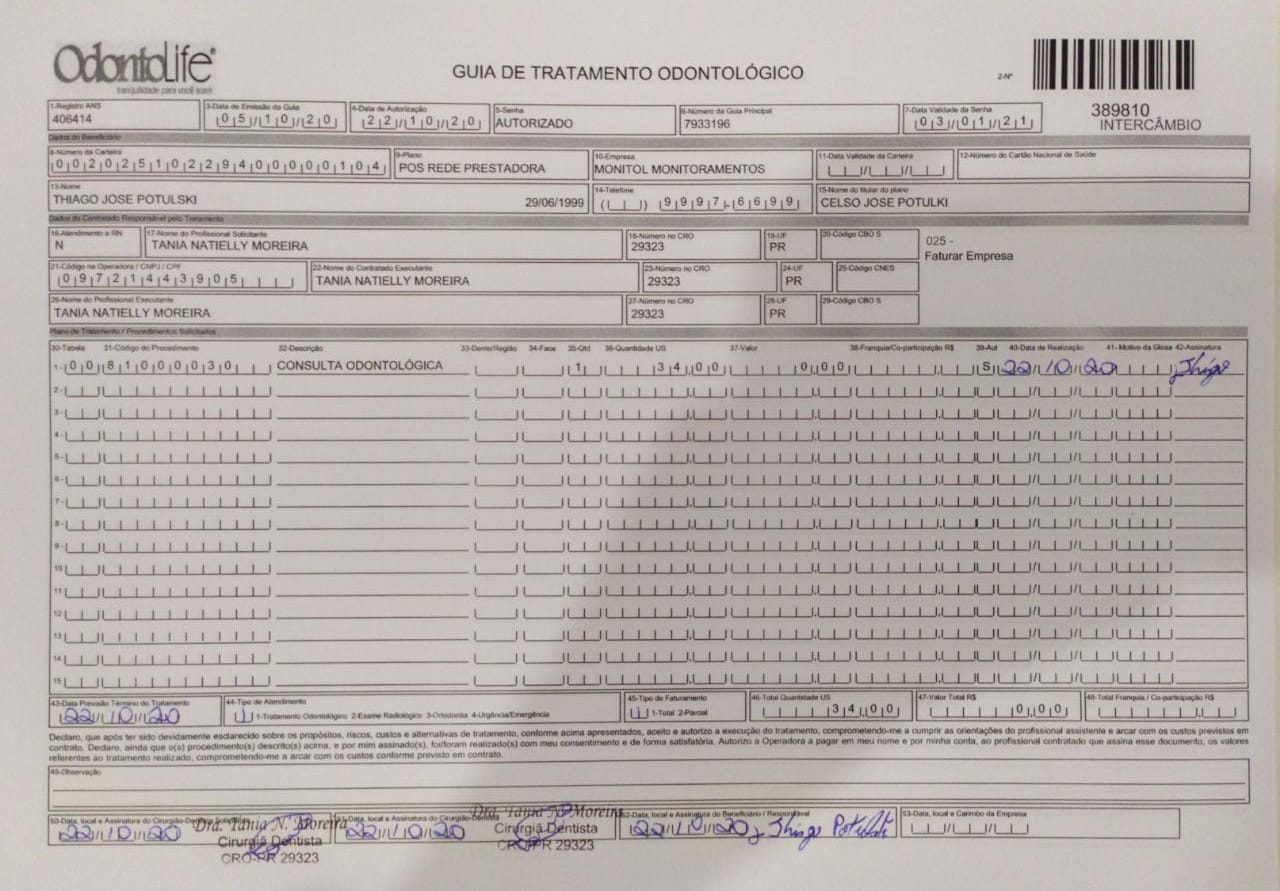 OdontoLife®
tranquilidade para você sorrir
GUIA DE TRATAMENTO ODONTOLÓGICO
2-Nº
389810
INTERCÂMBIO
1-Registro ANS
406414
3-Data de Emissão da Guia
05/10/20
4-Data de Autorização
22/10/20
5-Senha
AUTORIZADO
6-Número da Guia Principal
7933196
7-Data Validade da Senha
03/01/21
Dados do Beneficiário
8-Número da Carteira
00202510229400000104
9-Plano
POS REDE PRESTADORA
10-Empresa
MONITOL MONITORAMENTOS
11-Data Validade da Carteira
12-Número do Cartão Nacional de Saúde
13-Nome
THIAGO JOSE POTULSKI 29/06/1999
14-Telefone
( ) 9997-6699
15-Nome do titular do plano
CELSO JOSE POTULKI
Dados do Contratado Responsável pelo Tratamento
16-Atendimento a RN
N
17-Nome do Profissional Solicitante
TANIA NATIELLY MOREIRA
18-Número no CRO
29323
19-UF
PR
20-Código CBO S
025 -
Faturar Empresa
21-Código na Operadora / CNPJ / CPF
09721443905
22-Nome do Contratado Executante
TANIA NATIELLY MOREIRA
23-Número no CRO
29323
24-UF
PR
25-Código CNES
26-Nome do Profissional Executante
TANIA NATIELLY MOREIRA
27-Número no CRO
29323
28-UF
PR
29-Código CBO S
Plano de Tratamento / Procedimentos Solicitados
30-Tabela 31-Código do Procedimento 32-Descrição 33-Dente/Região 34-Face 35-Qtd 36-Quantidade US 37-Valor 38-Franquia/Co-participação R$ 39-Aut 40-Data de Realização 41- Motivo da Glosa 42-Assinatura
1- 00 81000030 CONSULTA ODONTOLÓGICA 1 34,00 0,00 S 22/10/20 Thiago
2-
3-
4-
5-
6-
7-
8-
9-
10
11
12
13
14
15
43-Data Previsão Término do Tratamento
22/10/20
44-Tipo de Atendimento
1-Tratamento Odontológico 2-Exame Radiológico 3-Ortodontia 4-Urgência/Emergência
45-Tipo de Faturamento
1-Total 2-Parcial
46-Total Quantidade US
34,00
47-Valor Total R$
0,00
48-Total Franquia / Co-participação R$
Declaro, que após ter sido devidamente esclarecido sobre os propósitos, riscos, custos e alternativas de tratamento, conforme acima apresentados, aceito e autorizo a execução do tratamento, comprometendo-me a cumprir as orientações do profissional assistente e arcar com os custos previstos em
contrato. Declaro, ainda que o(s) procedimento(s) descrito(s) acima, e por mim assinado(s), foi/foram realizado(s) com meu consentimento e de forma satisfatória. Autorizo a Operadora a pagar em meu nome e por minha conta, ao profissional contratado que assina esse documento, os valores
referentes ao tratamento realizado, comprometendo-me a arcar com os custos conforme previsto em contrato.
49-Observação
50-Data, local e Assinatura do Cirurgião-Dentista Solicitante
22/10/20
Dra. Tania N. Moreira
Cirurgiã Dentista
CRO-PR 29323
Data, local e Assinatura do Cirurgião-Dentista
22/10/20
Dra. Tania N. Moreira
Cirurgiã Dentista
CRO-PR 29323
52-Data, local e Assinatura do Beneficiário / Responsável
22/10/20 Thiago Potulski
53-Data, local e Carimbo da Empresa